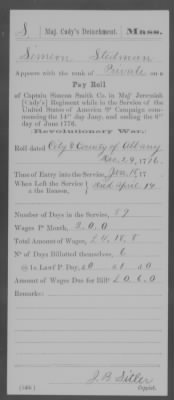 S | Maj. Cady's Detachment. | Mass.
Simeon Stedman
Appears with the rank of Private on a
Pay Roll
of Captain Simeon Smith Co. in Maj Jeremiah
[Cady's] Regiment while in the Service of the
United States of America 9th Campaign com-
mencing the 14th day Jany. and ending the 8th
day of June 1776.
(Revolutionary War.)
Roll dated City & County of Albany
Dec. 29, 1776.
Time of Entry into the Service, Jan. 18, 17
When Left the Service
& the Reason,
and April 14
Number of Days in the Service, 87
Wages Pr Month, 2.0.0
Total Amount of Wages, £
No of Days Billotted themselves, 6
@ 1s Lawf'l P. Day,
Amount of Wages Due for Bill: £0.6.0
Remarks:
J. B. Sitler
Copyist.